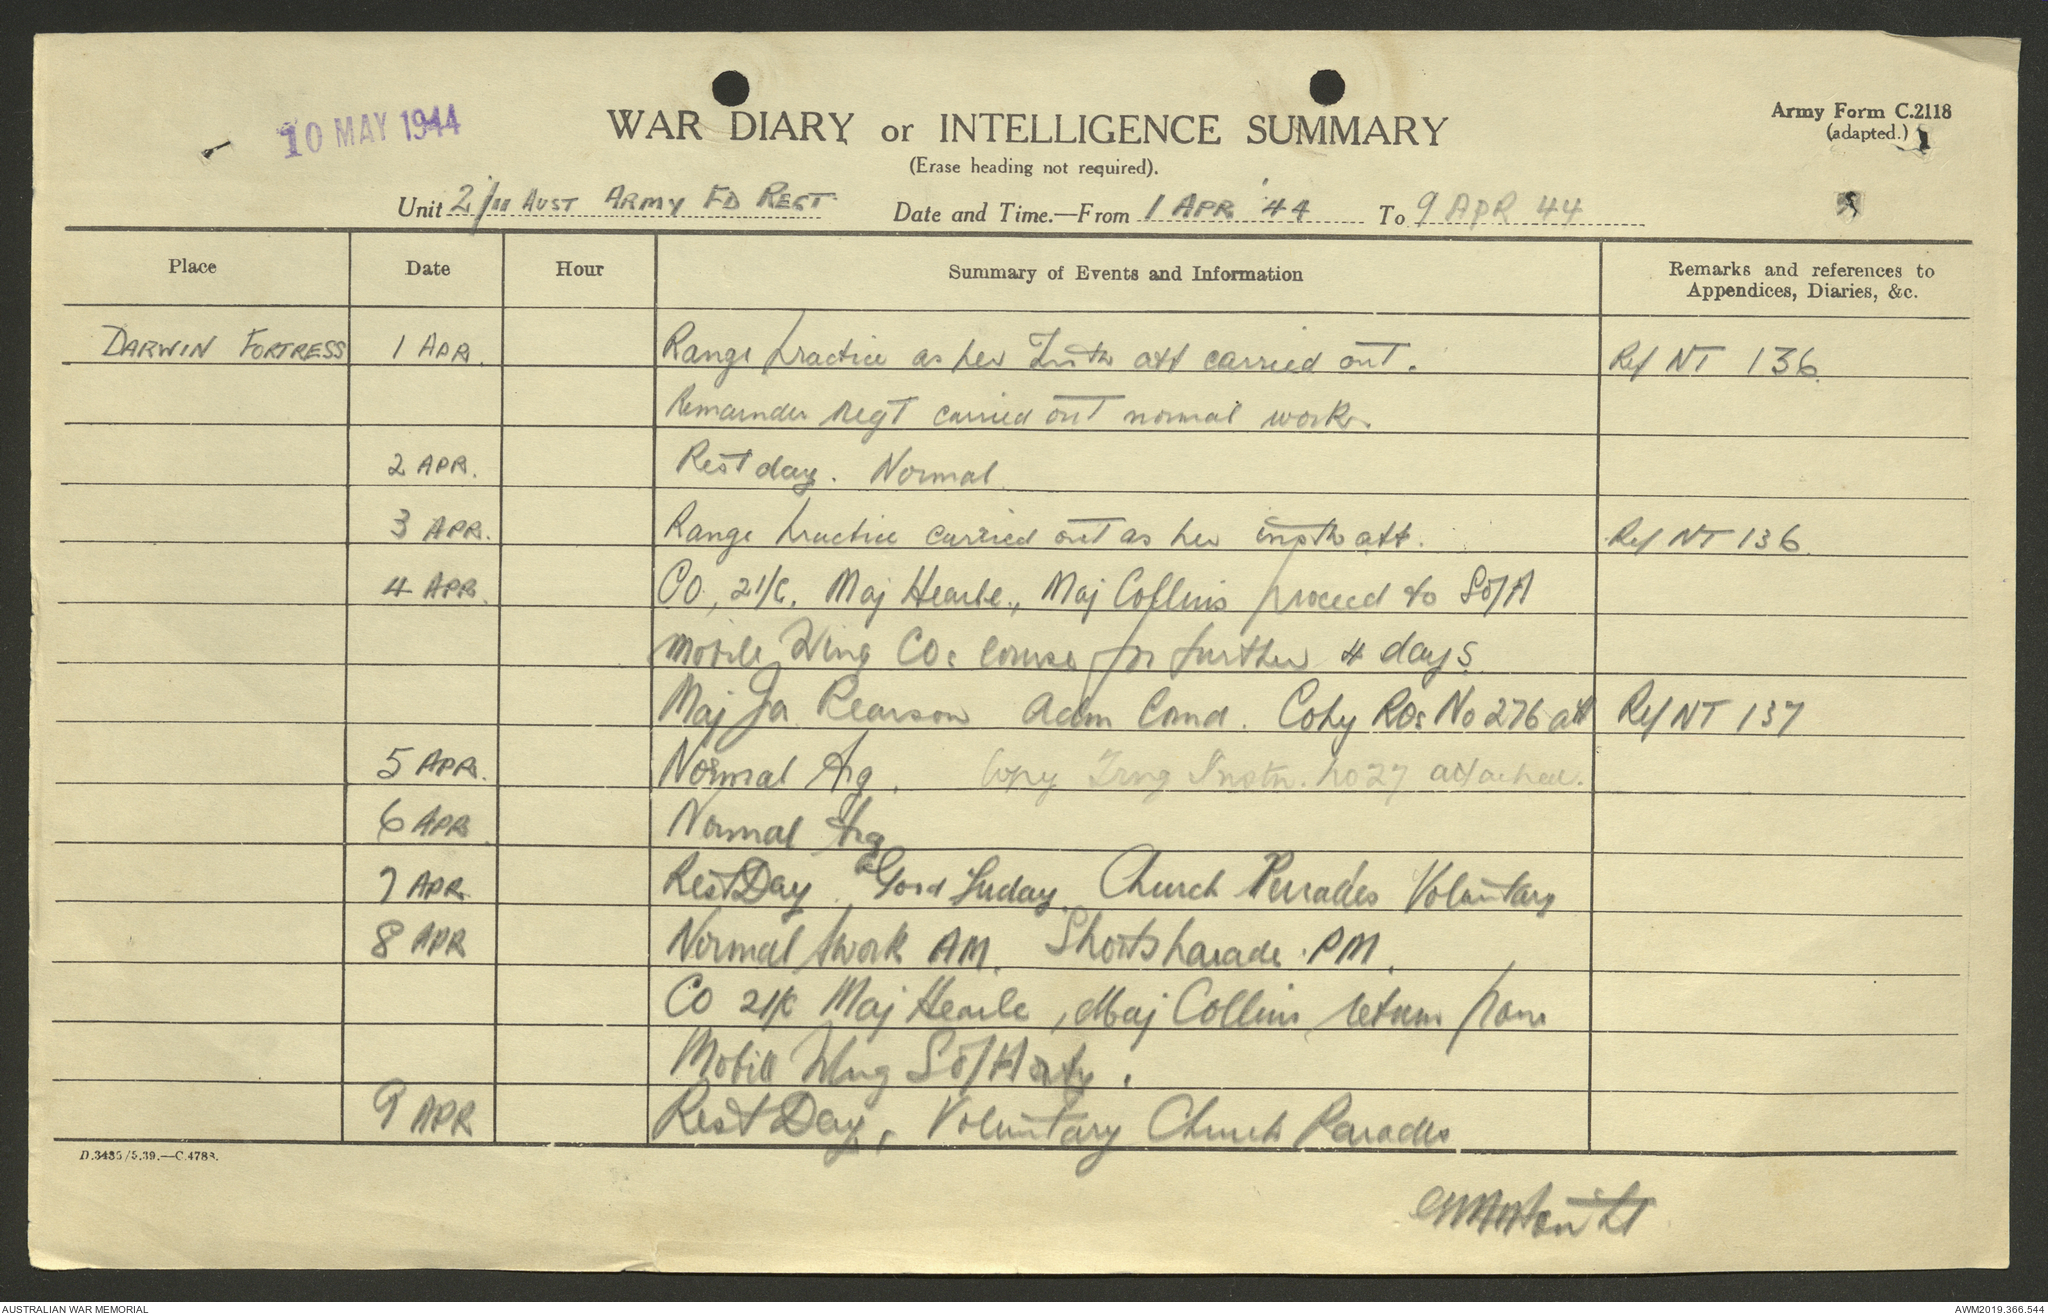 10 MAY 1944
WAR DIARY or INTELLIGENCE SUMMARY
(Erase heading not required).
Army Form C.2118
(adapted.)
Unit 2/11 AUST ARMY FD REGT Date and Time.—From 1 APR '44 To 9 APR 44
Place Date Hour Summary of Events and Information Remarks and references to Appendices, Diaries, &c.
DARWIN FORTRESS 1 APR. Range practice as per Instn att carried out. Ref NT 136.
Remainder Regt carried out normal work.
2 APR. Rest day. Normal
3 APR. Range practice carried out as per instn att. Ref NT 136
4 APR. CO, 2I/C, Maj Hearle, Maj Collins proceed to S of A
Mobile Wing COs course for further 4 days.
Maj Pearson Adm Comd. Copy ROs No 276 att Ref NT 137
5 APR. Normal trg. Copy Trng Instn. No 27 attached.
6 APR Normal trg
7 APR Rest Day Good Friday. Church Parades Voluntary
8 APR Normal work AM. Sports parade PM.
CO 2I/C Maj Hearle, Maj Collins return from
Mobile Wing S of A arty.
9 APR Rest Day, Voluntary Church Parades
D.3435/5.39.—C.4788.
AUSTRALIAN WAR MEMORIAL
AWM2019.366.544